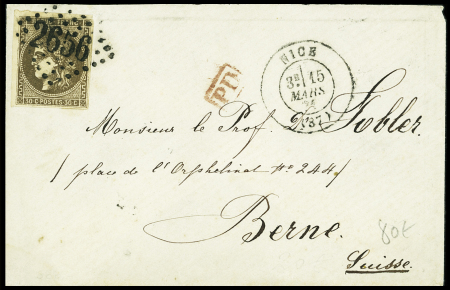 2656
30 C. POSTES 30 C.
PD
NICE
3E 15
MARS
(87)
Monsieur le Prof. Dr Tobler.
/ place de l'Orphelinat No 244/
Berne.
Suisse.
80€